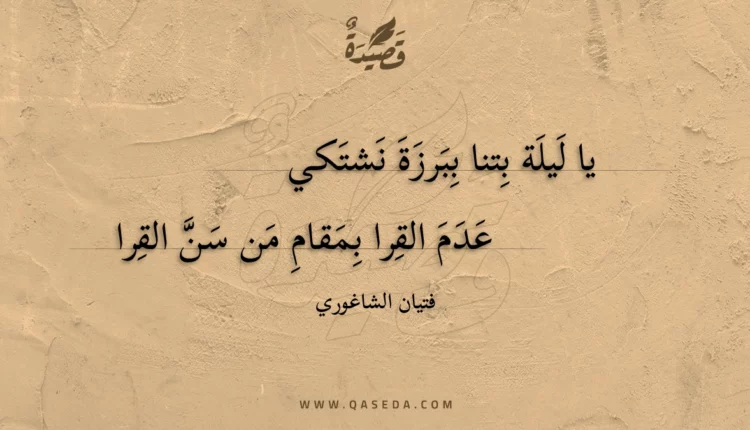 قَصِيدَةٌ
يا لَيلَة بِتنا بِبَرزَةَ نَشتَكي
عَدَمَ القِرا بِمَقامِ مَن سَنَّ القِرا
فتيان الشاغوري
WWW.QASEDA.COM